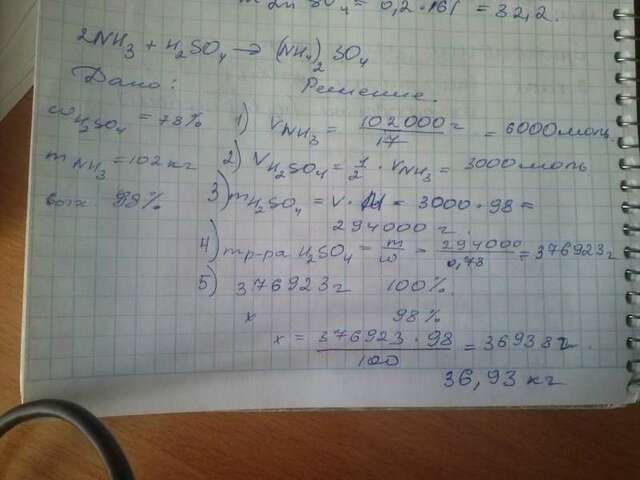 m ZnSO₄ = 0,2 · 161 = 32,2.
2NH₃ + H₂SO₄ → (NH₄)₂ SO₄
Дано: Решение.
ω H₂SO₄ = 78% 1) ν NH₃ = 102000 г / 17 = 6000 моль.
m NH₃ = 102 кг 2) ν H₂SO₄ = 1/2 · ν NH₃ = 3000 моль
вых. 98% 3) m H₂SO₄ = ν · M = 3000 · 98 =
294000 г.
4) m р-ра H₂SO₄ = m/ω = 294000 / 0,78 = 376923 г
5) 376923 г 100%.
x 98%
x = 376923 · 98 / 100 = 36938 г.
36,93 кг